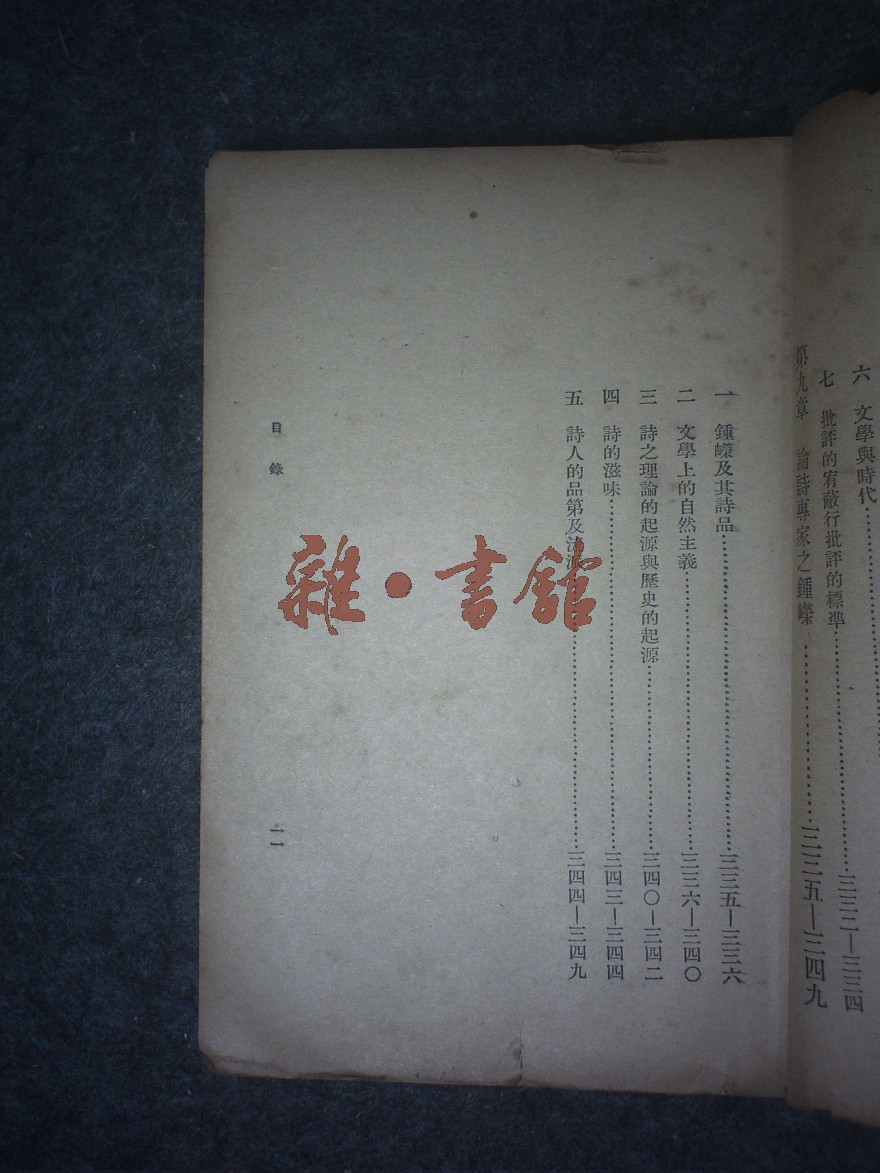 六 文學與時代
七 批評的宥蔽行批評的標準 三三二—三三四
第九章 論詩專家之鍾嶸 三三五—三四九
一 鍾嶸及其詩品 三三五—三三六
二 文學上的自然主義 三三六—三四〇
三 詩之理論的起源與歷史的起源 三四〇—三四二
四 詩的滋味 三四三—三四四
五 詩人的品第及流派 三四四—三四九
目錄
一一
雜·書館